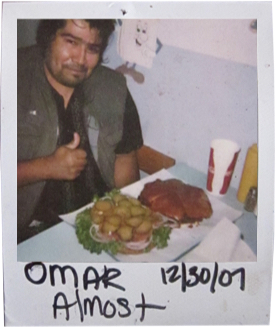 OMAR 12/30/07
Almost